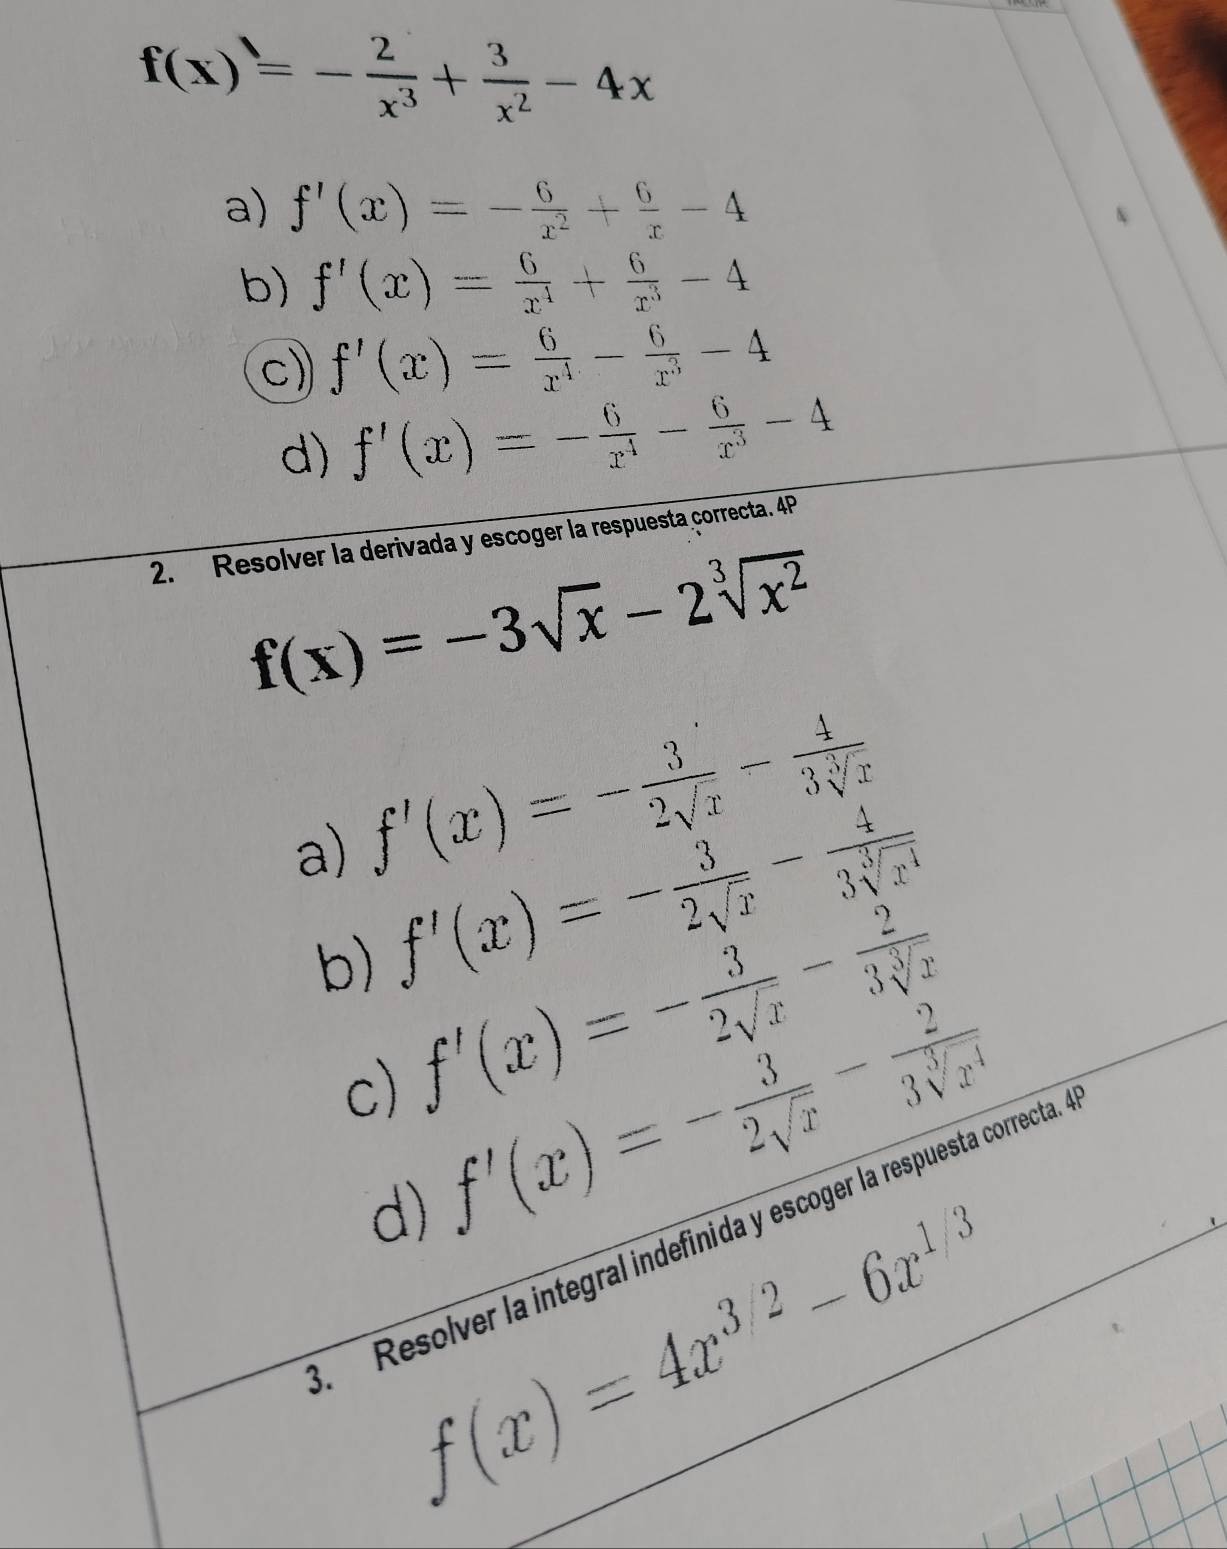 f(x) = -2/x³ + 3/x² - 4x
a) f'(x) = -6/x² + 6/x - 4
b) f'(x) = 6/x⁴ + 6/x³ - 4
c) f'(x) = 6/x⁴ - 6/x³ - 4
d) f'(x) = -6/x⁴ - 6/x³ - 4
2. Resolver la derivada y escoger la respuesta correcta. 4P
f(x) = -3√x - 2∛x²
a) f'(x) = -3/(2√x) - 4/(3∛x)
b) f'(x) = -3/(2√x) - 4/(3∛x⁴)
c) f'(x) = -3/(2√x) - 2/(3∛x)
d) f'(x) = -3/(2√x) - 2/(3∛x⁴)
3. Resolver la integral indefinida y escoger la respuesta correcta. 4P
f(x) = 4x^3/2 - 6x^1/3